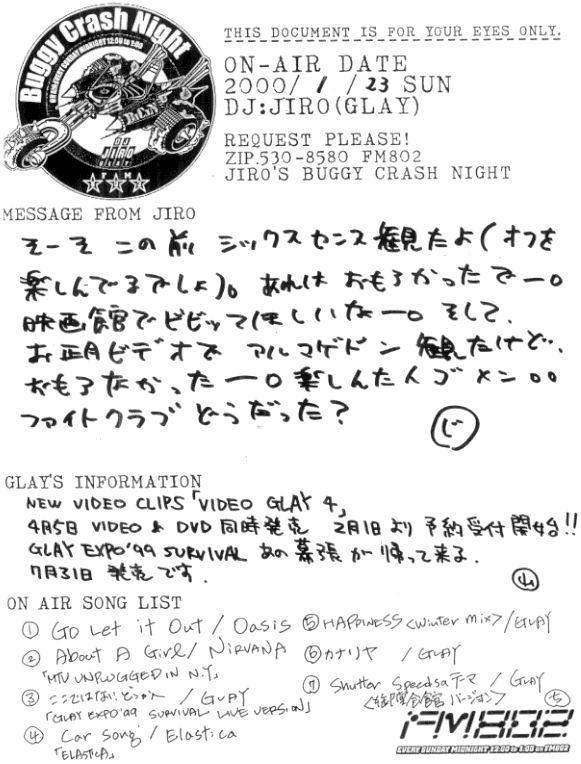 Buggy Crash Night
ON AIR EVERY SUNDAY MIDNIGHT 12:00 to 1:00
DJ
JIRO
GLAY
THIS DOCUMENT IS FOR YOUR EYES ONLY.
ON-AIR DATE
2000/ 1 / 23 SUN
DJ:JIRO(GLAY)
REQUEST PLEASE!
ZIP.530-8580 FM802
JIRO'S BUGGY CRASH NIGHT
MESSAGE FROM JIRO
そーそ この前 シックスセンス観たよ(オフを
楽しんでるでしょ)。あれは おもろかったで一。
映画館でビビッてほしいなー。そして、
お正月ビデオで アルマゲドン 観たけど…
おもろなかったー。楽しんだ人ゴメン。。
ファイトクラブ どうだった?
じ
GLAY'S INFORMATION
NEW VIDEO CLIPS「VIDEO GLAY 4」
4月5日 VIDEO & DVD 同時発売 2月1日より 予約受付開始!!
GLAY EXPO'99 SURVIVAL あの幕張が帰って来る.
7月31日 発売です.
山
ON AIR SONG LIST
① Go Let it Out / Oasis
② About A Girl / NIRVANA
「MTV UNPLUGGED IN N.Y.」
③ ここではない、どこかへ / GLAY
「GLAY EXPO'99 SURVIVAL LIVE VERSION」
④ Car Song / Elastica
「ELASTICA」
⑤ HAPPINESS <Winter Mix> / GLAY
⑥ カナリヤ / GLAY
⑦ Shutter Speedsaテーマ / GLAY
バージョン>
FM802
EVERY SUNDAY MIDNIGHT 12:00 to 1:00 on FM802